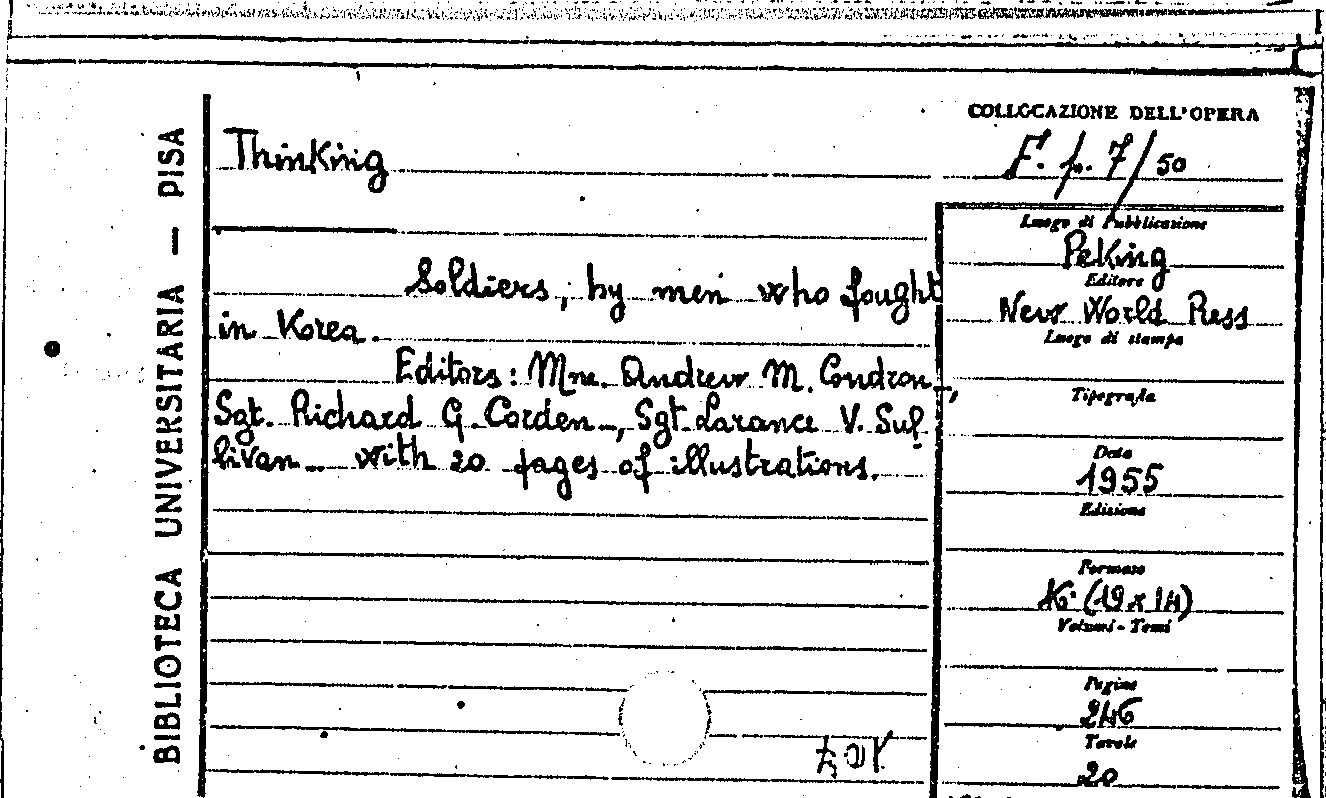 BIBLIOTECA UNIVERSITARIA — PISA
Thinking
Soldiers, by men who fought
in Korea.
Editors: Mne. Andrew M. Condron,
Sgt. Richard G. Corden, Sgt. Larance V. Sul
livan with 20 pages of illustrations.
COLLOCAZIONE DELL'OPERA
F. p. 7/50
Luogo di Pubblicazione
Peking
Editore
New World Press
Luogo di stampa
Tipografia
Data
1955
Edizione
Formato
16° (19 x 14)
Volumi - Tomi
Pagine
246
Tavole
20